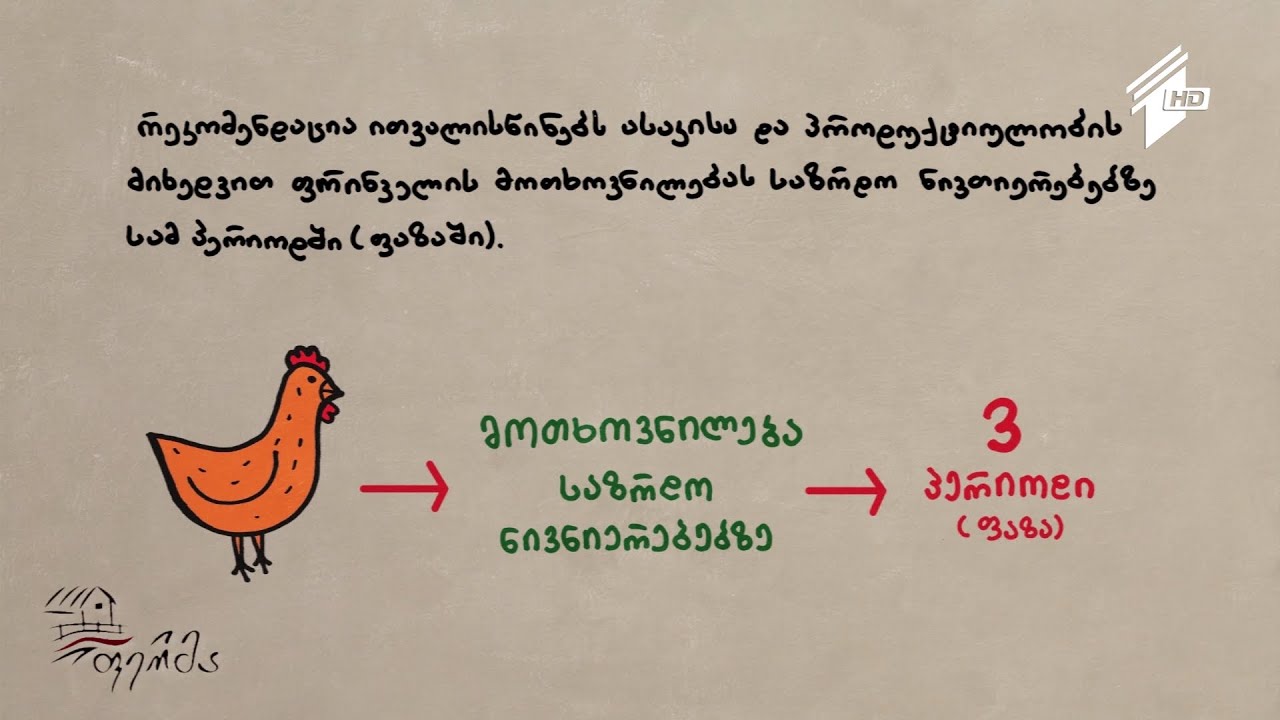 რეკომენდაცია ითვალისწინებს ასაკისა და პროდუქტიულობის
მიხედვით ფრინველის მოთხოვნილებას საზრდო ნივთიერებებზე
სამ პერიოდში (ფაზაში).
მოთხოვნილება
საზრდო
ნივნიერებებზე
3
პერიოდი
(ფაზა)
HD
ფერმა